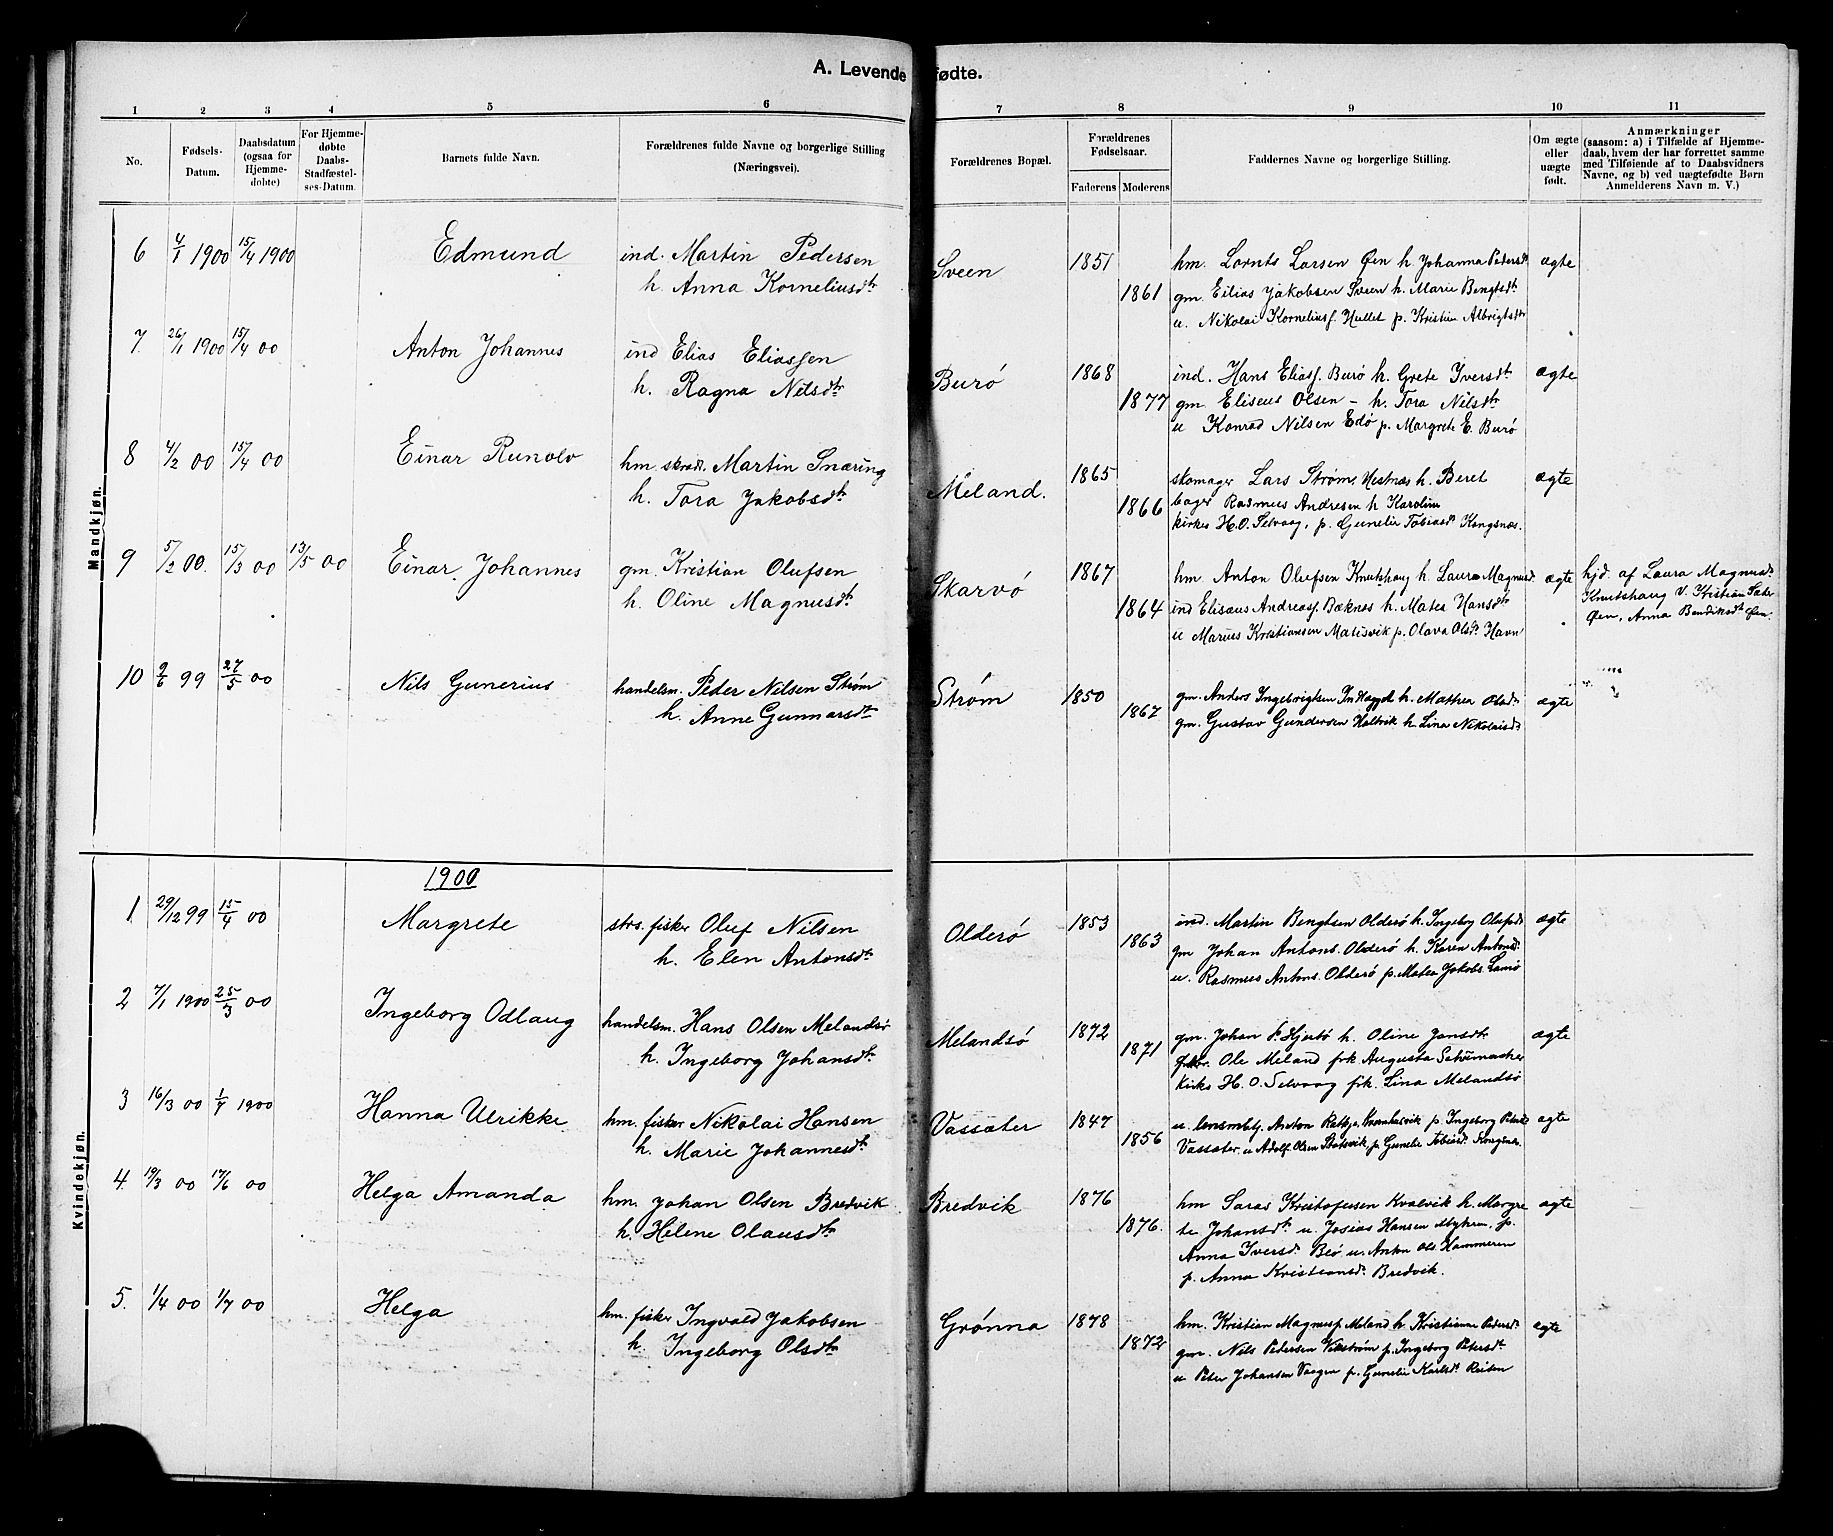 A. Levende fødte.
1 2 3 4 5 6 7 8 9 10 11
No.
Fødsels-Datum.
Daabsdatum (ogsaa for Hjemmedøbte)
For Hjemmedøbte Daabs-Stadfæstelses-Datum.
Barnets fulde Navn.
Forældrenes fulde Navne og borgerlige Stilling (Næringsvei).
Forældrenes Bopæl.
Forældrenes Fødselsaar.
Faderens Moderens
Faddernes Navne og borgerlige Stilling.
Om ægte eller uægte født.
Anmærkninger (saasom: a) i Tilfælde af Hjemmedaab, hvem der har forrettet samme med Tilføiende af to Daabsvidners Navne, og b) ved uægtefødte Børn Anmelderens Navn m. V.)
Mandkjøn.
6 4/1 1900 15/4 1900 Edmund ind. Martin Pedersen Sveen 1851 hm. Lornts Larsen Øen h Johanna Petersdt ægte
h. Anna Korneliusdtr 1861 gm. Eilias Jakobsen Sveen h. Marie Bengtsdt
u. Nikolai Kornelius. Hullet p. Kristin Albrigtsdtr
7. 26/1 1900 15/4 00 Anton Johannes ind Elias Eliassen Burø 1868 ind. Hans Eliass. Burø h. Grete Iversdt ægte
h. Ragna Nilsdtr 1877 gm. Eliseus Olsen - h. Tora Nilsdtr
u Konrad Nilsen Edø p. Margrete E. Burø
8 4/2 00 15/4 00 Einar Runolv hm. skræd. Martin Snæring Meland. 1865 skomager Lars Strøm, Hestnæs h. Beret ægte
h. Tora Jakobsdtr 1866 bager Rasmus Andresen h Karoline
kirkes H. O. Selvaag, p. Gunelie Tobiasdt Kongsnæs.
9 5/2 00. 15/3 00 13/5 00 Einar Johannes gm. Kristian Olufsen Skarvø 1867 hm Anton Olufsen Knutshaug h. Laura Magnusd. ægte hjd. af Laura Magnusdt.
h. Oline Magnusdtr 1864 ind Elisæus Andreass. Bæknes h. Matea Hansdtr Knutshaug V. Kristian Peter
u Marius Kristiansen Matisvik p. Olava Olsdt. Havn Øen, Anna Bendiksdt Øen.
10 9/6 99 27/5 00 Nils Gunerius handelsm. Peder Nilsen Strøm Strøm 1850 gm. Anders Ingebrigtsen h. Mathea Olsdt. ægte
h. Anne Gunnarsdtr 1867 gm. Gustav Gundersen Haltvik h. Lina Nikolaisdt
Kvindekjøn.
1900
1 29/12 99 15/4 00 Margrete strs. fisker Oluf Nilsen Olderø 1853 ind. Martin Bengtsen Olderø h. Ingeborg Olufsdt ægte
h. Elen Antonsdtr 1863 gm Johan Antons. Olderø h. Karen Antonsdt
u. Rasmus Antons. Olderø p. Matea Jakobs. Lamø
2 7/1 1900 25/3 00 Ingeborg Odlaug handelsm. Hans Olsen Melandsø Melandsø 1872 gm. Johan P. Hjertø h. Oline Jansdtr ægte
h. Ingeborg Johansdtr 1871 Ole Meland frk Augusta Schumacher
kirks H. O. Selvaag frk. Lina Melandsø
3 16/3 00 1/7 1900 Hanna Ulrikke hm. fisker Nikolai Hansen Vassæter 1847 u. lensmbtj. Anton p. Ingeborg Petersdt ægte
h. Marie Johannesdtr 1856 Vassæter u Adolf Olsen p. Gunelie Tobiasdt. Kongsnæs
4. 19/3 00 17/6 00 Helga Amanda hm. Johan Olsen Bredvik Bredvik 1876 hm Saras Kristofersen Kvalvik h. Margre ægte
h Helene Olausdtr 1876. te Johansdtr u Josias Hansen p.
Anna Iversdt. Beø u. Anton Ols Hammeren
p. Anna Kristiansdt. Bredvik.
5. 1/4 00 1/7 00 Helga hm. fisker Ingvald Jakobsen Grønna 1878 hm. Kristian Magnuss. Meland h Kristiane Petersdt. ægte
h. Ingeborg Olsdtr 1872 gm. Nils Petersen Vikstrøm p. Ingeborg Petersdtr
u Peter Johansen Vaagen p. Gunelie Karlsdt. Reiten